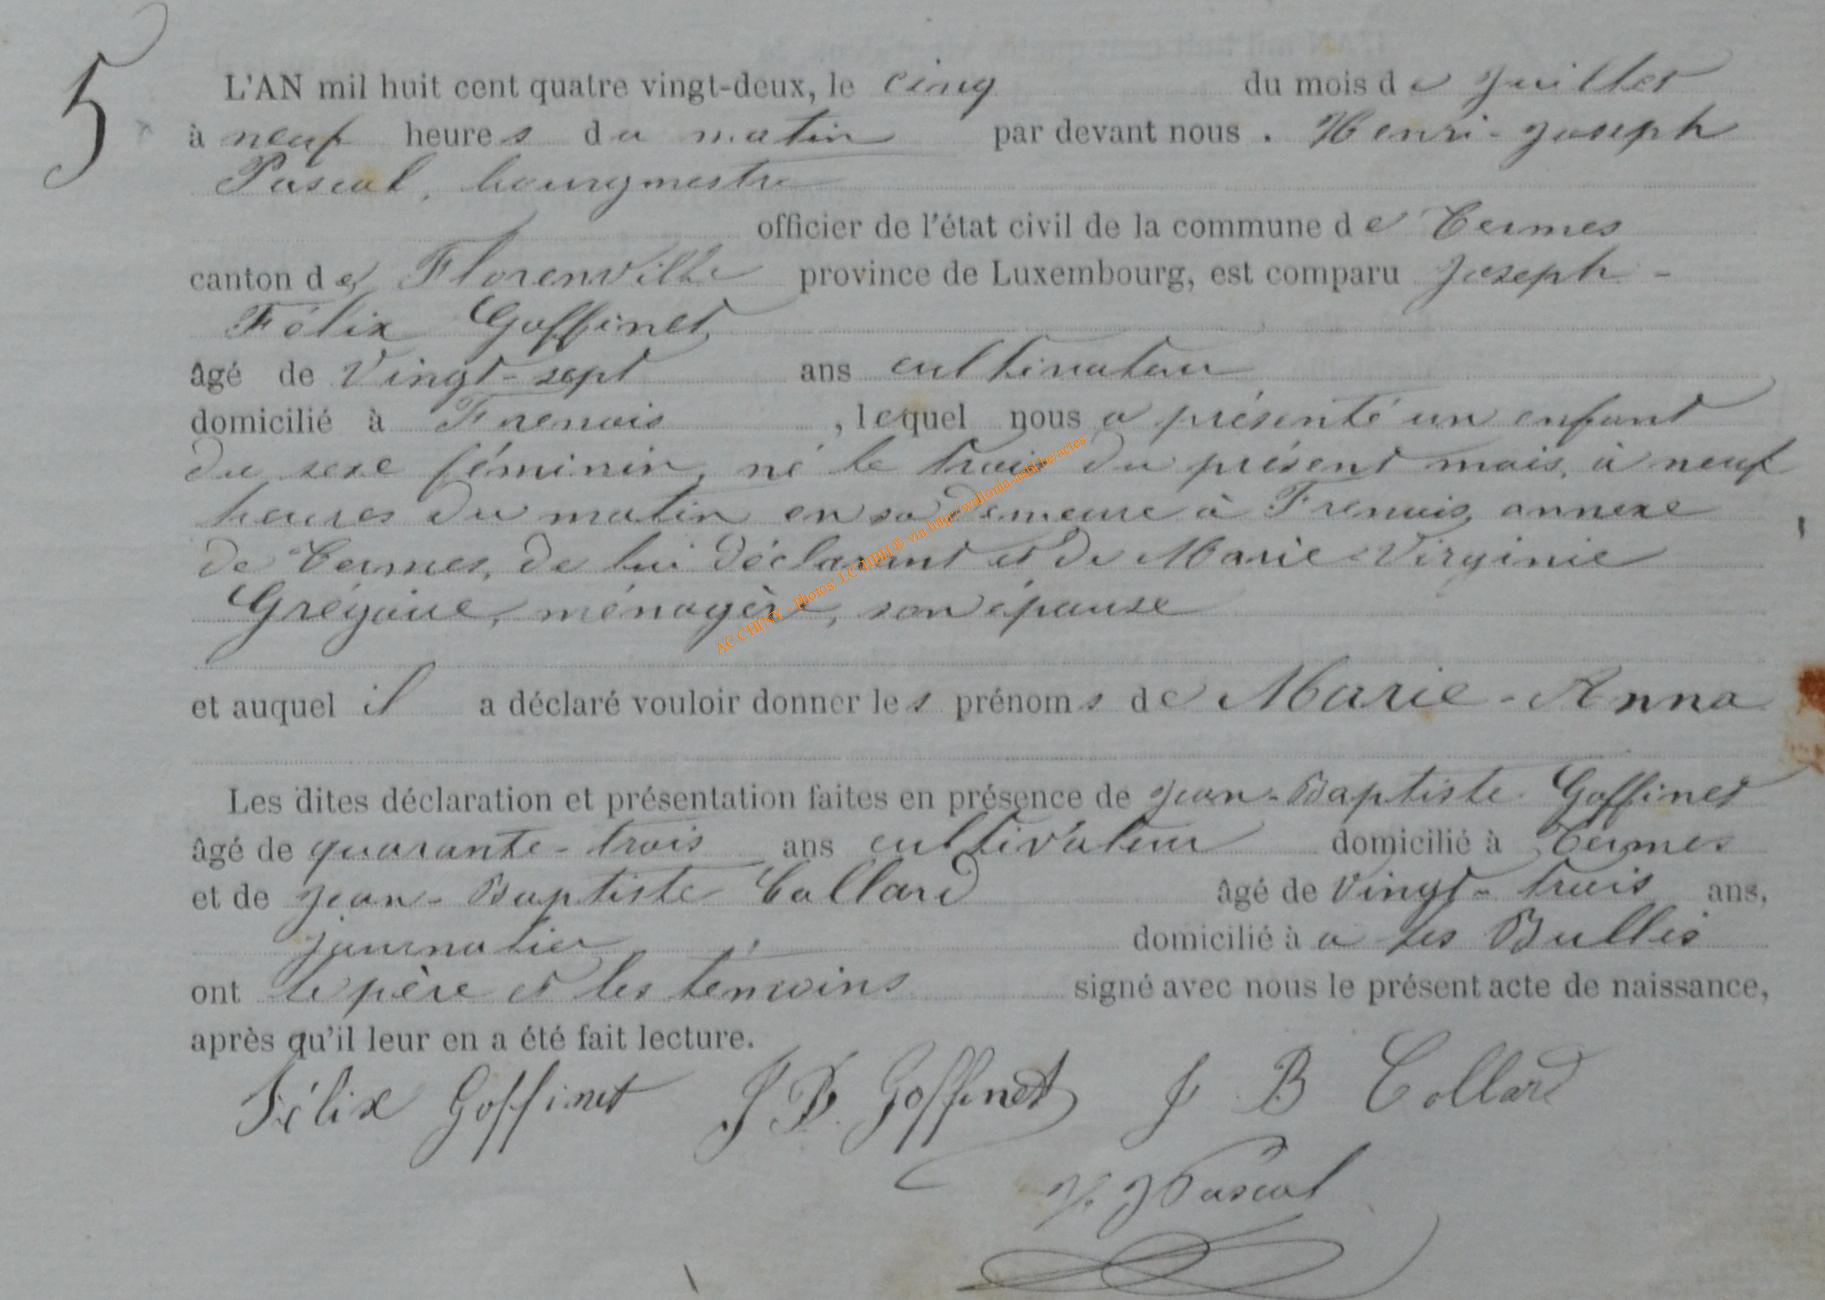 5
L'AN mil huit cent quatre vingt-deux, le cinq du mois de Juillet
à neuf heures du matin par devant nous . Henri-Joseph
Pascal, bourgmestre
officier de l'état civil de la commune de Termes
canton de Florenville province de Luxembourg, est comparu Joseph-
Félix Goffinet
âgé de Vingt-sept ans cultivateur
domicilié à Frenois , lequel nous a présenté un enfant
du sexe féminin, né le trois du présent mois, à neuf
heures du matin en sa demeure à Frenois, annexe
de Termes, de lui déclarant et de Marie-Virginie
Grégoire, ménagère, son épouse
et auquel il a déclaré vouloir donner les prénoms de Marie-Anna
Les dites déclaration et présentation faites en présence de Jean-Baptiste Goffinet
âgé de quarante-trois ans cultivateur domicilié à Termes
et de Jean-Baptiste Collard âgé de Vingt-trois ans,
journalier domicilié à a les Bulles
ont le père et les témoins signé avec nous le présent acte de naissance,
après qu'il leur en a été fait lecture.
Félix Goffinet J B Goffinet J B Collard
H. J Pascal
AC CHINY - Photos J.C HIBLE via http:wallonia-asbl.be/actes